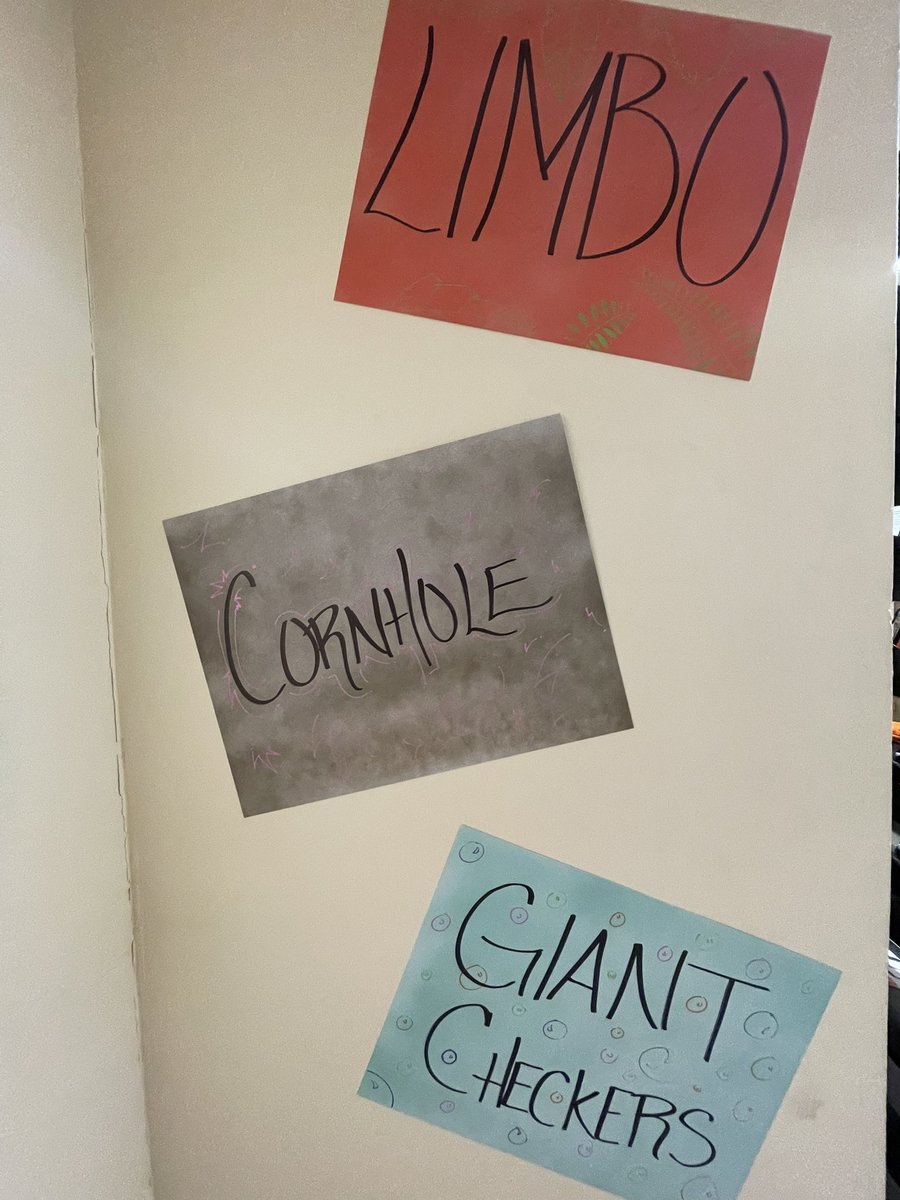 LIMBO
CORNHOLE
GIANT
CHECKERS